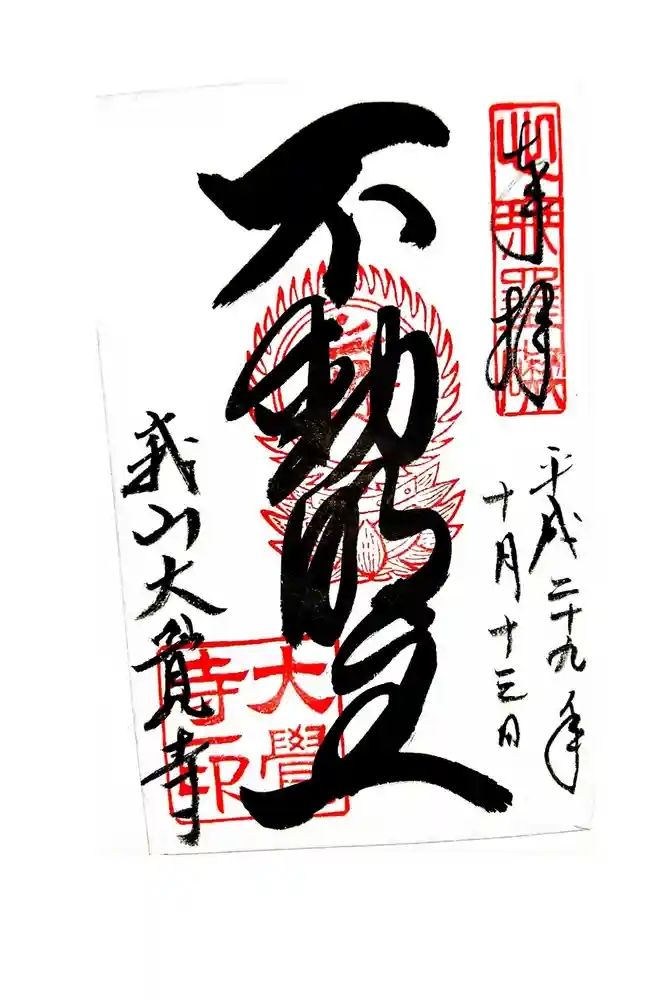 奉拝
平成二十九年
十月十三日
不動明王
我山大覚寺
大覺
寺印